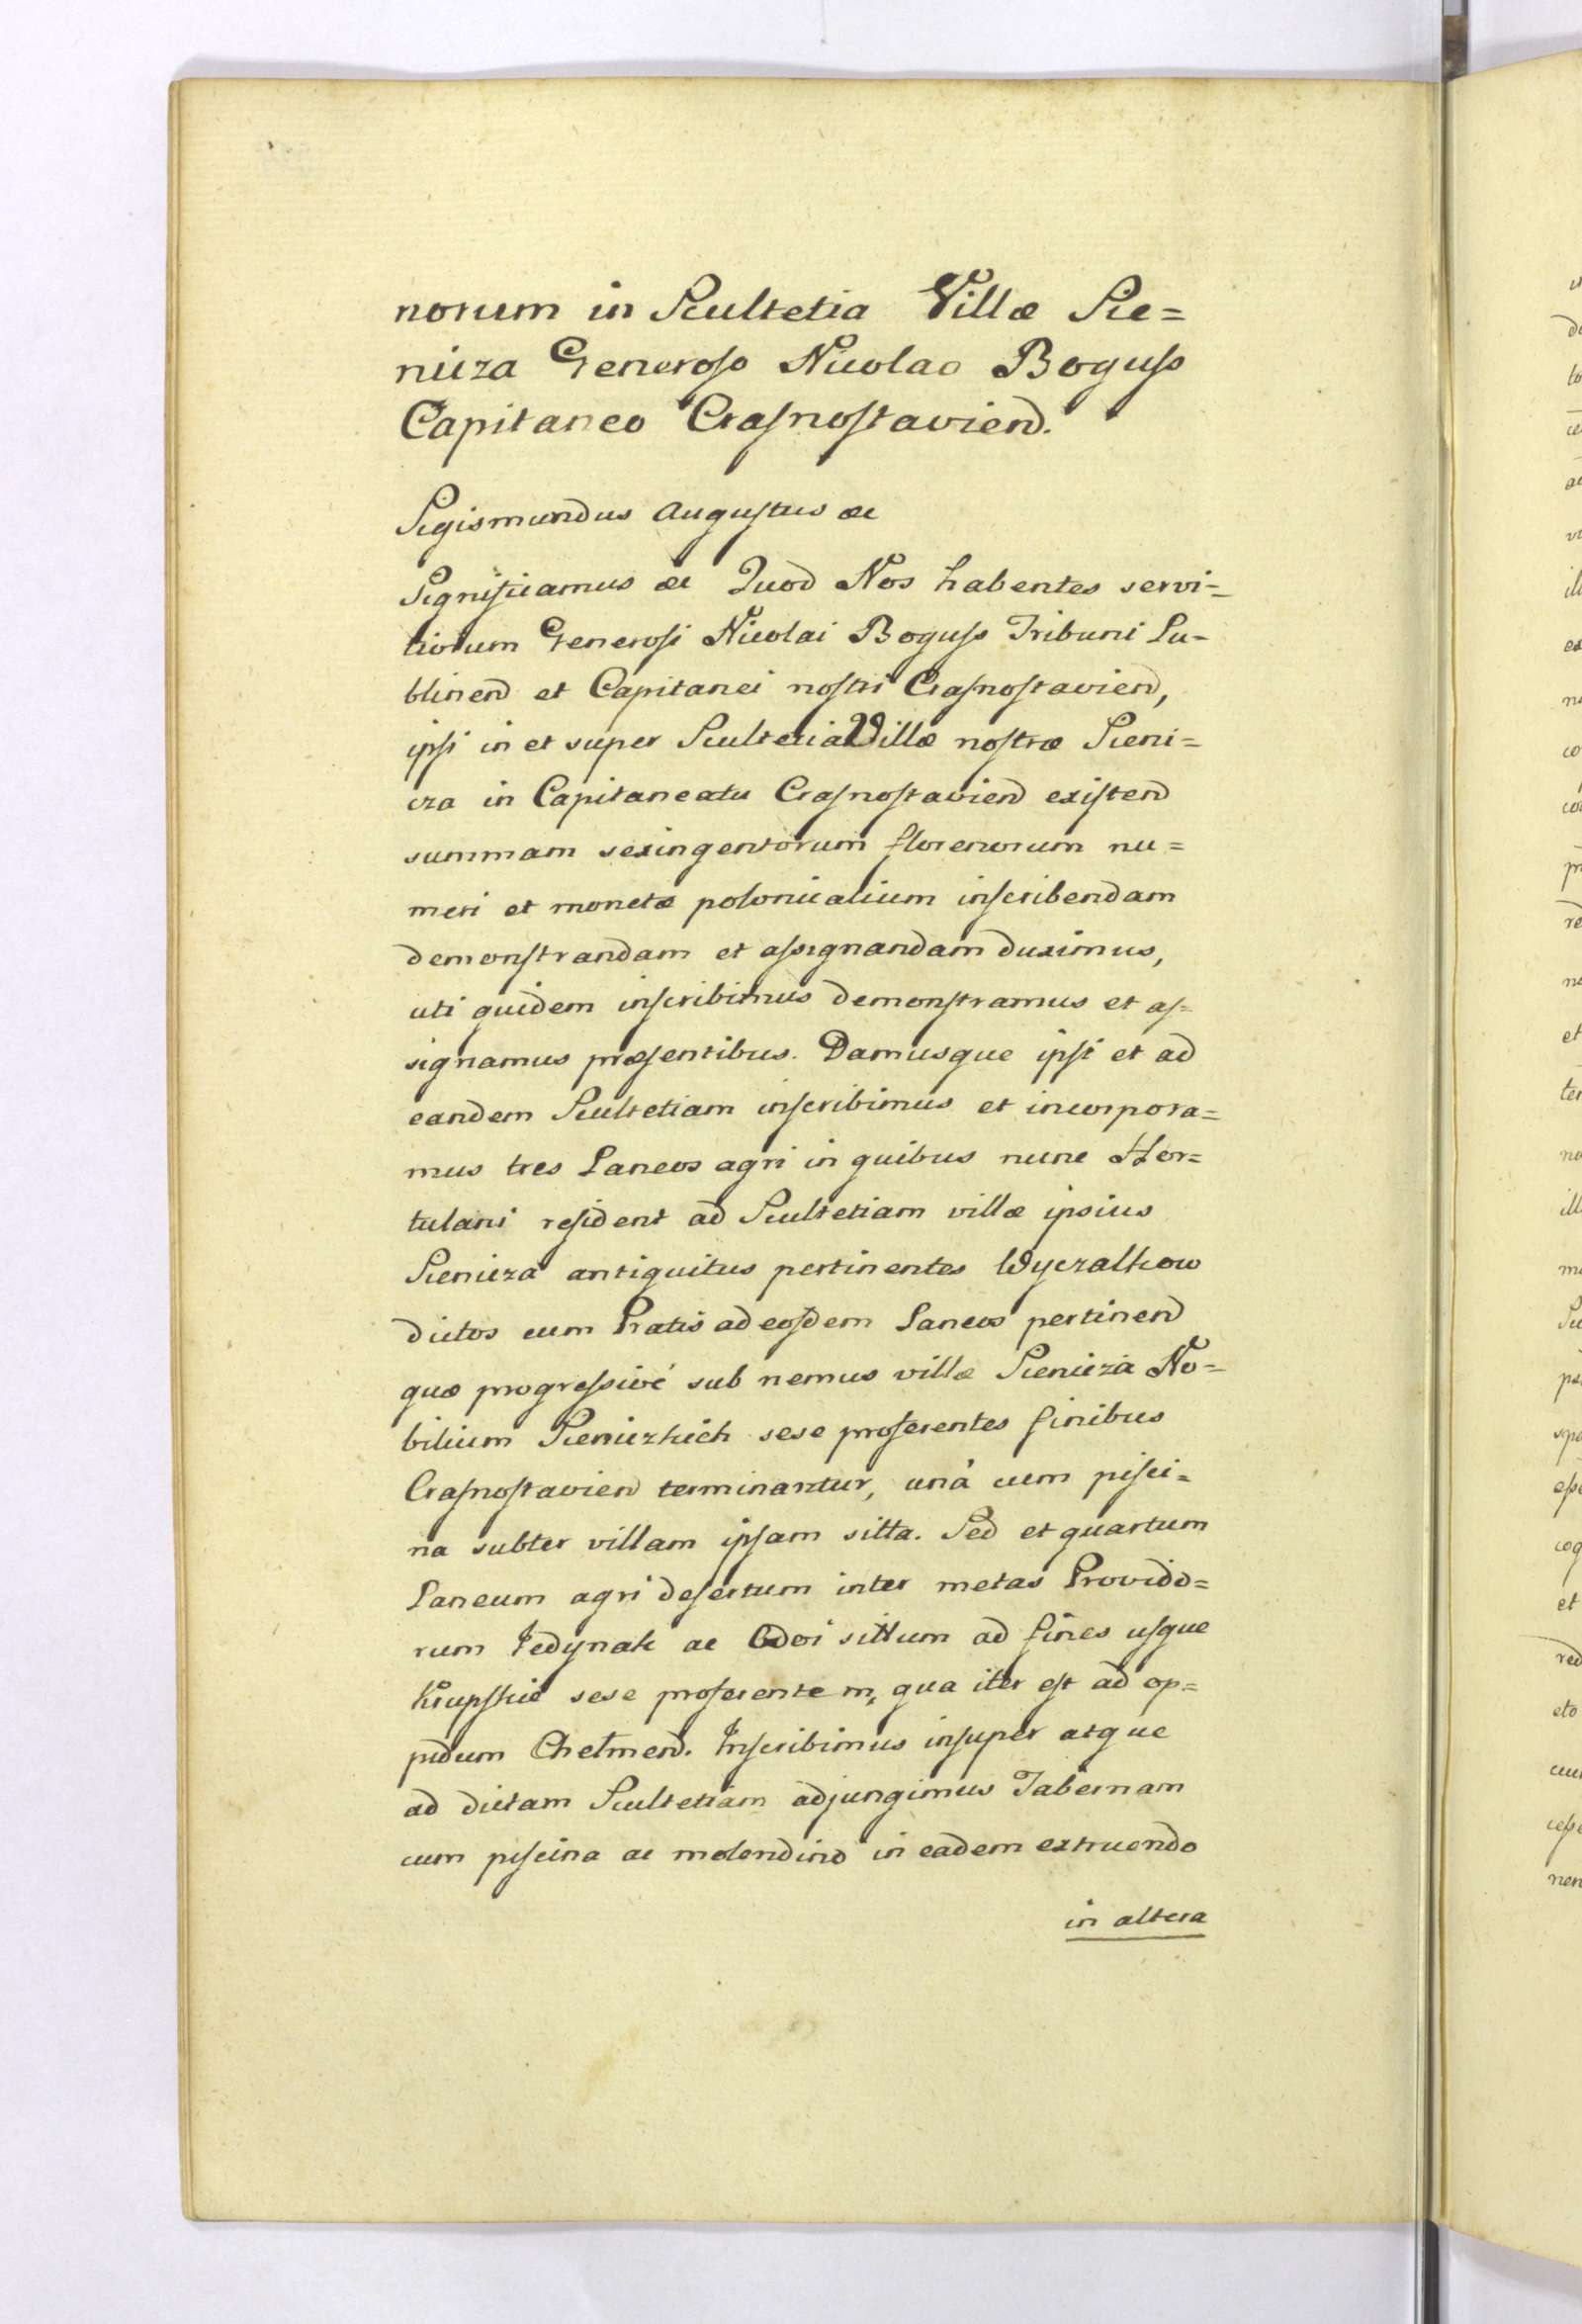 norum in Scultetia Villæ Sie=
nicza Generoso Nicolao Boguss
Capitaneo Crasnostavien̄.
Sigismundus Augustus &c
Significamus &c Quod Nos habentes servi=
tiorum Generosi Nicolai Boguss Tribuni Lu-
blinen̄ et Capitanei nostri Crasnostavien̄,
ipsi in et super Scultetia Villæ nostræ Sieni=
cza in Capitaneatu Crasnostavien̄ existen̄
summam sexingentorum florenorum nu=
meri et monetæ polonicalium inscribendam
demonstrandam et assignandam duximus,
uti quidem inscribimus demonstramus et as=
signamus præsentibus. Damusque ipsi et ad
eandem Scultetiam inscribimus et incorpora=
mus tres Laneos agri in quibus nunc Hor=
tulani resident ad Scultetiam villæ ipsius
Sienicza antiquitus pertinentes Wyczalkow
dictos cum Pratis ad eosdem Laneos pertinen̄
quæ progressivé sub nemus villæ Sienicza No=
bilium Sieniczkich sese proferentes finibus
Crasnostavien̄ terminantur, unà cum pisci=
na subter villam ipsam sitta. Sed et quartum
Laneum agri desertum inter metas Provido=
rum Jedynak ac Odoi sittum ad fines usque
Krupskie sese proferentem, qua iter est ad op=
pidum Chełmen̄. Inscribimus insuper atque
ad dictam Scultetiam adjungimus Tabernam
cum piscina ac molendino in eadem extruendo
in altera